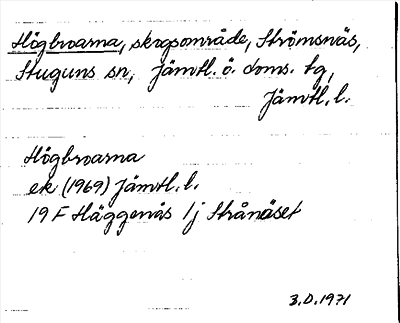 Högbroarna, skogsområde, Strömsnäs,
Stuguns sn, Jämtl. ö. doms. tg,
Jämtl. l.
Högbroarna
ek (1969) Jämtl. l.
19 F Häggenås 1j Strånäset
3.D.1971